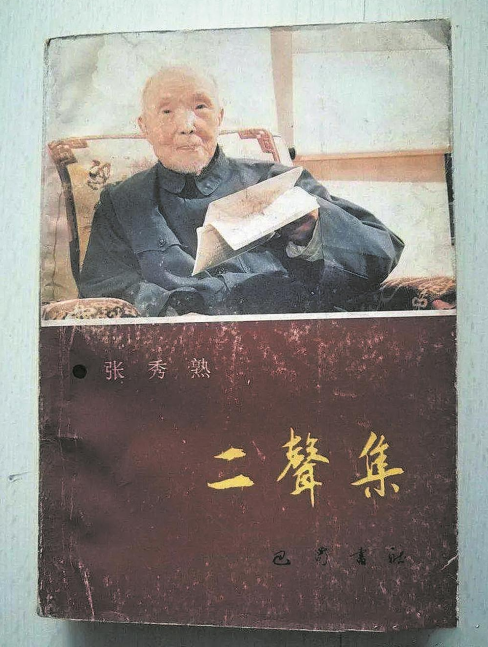 张秀熟
二聲集
巴蜀書社